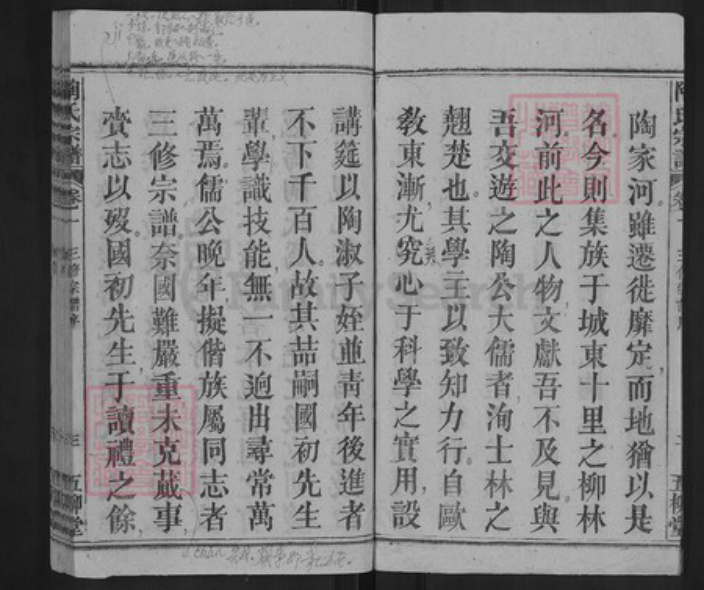 陶家河雖遷徙靡定而地猶以是
名今則集族于城東十里之柳林
河前此之人物文獻吾不及見與
吾交遊之陶公大儒者洵士林之
翹楚也其學主以致知力行自歐
敎東漸尤究心于科學之實用設
講筵以陶淑子姪並靑年後進者
不下千百人故其喆嗣國初先生
輩學識技能無一不逈出尋常萬
萬焉儒公晚年擬偕族屬同志者
三修宗譜奈國難嚴重未克蕆事
賫志以歿國初先生于讀禮之餘
陶氏宗譜 卷一 三修宗譜序 三 五柳堂
FamilySearch